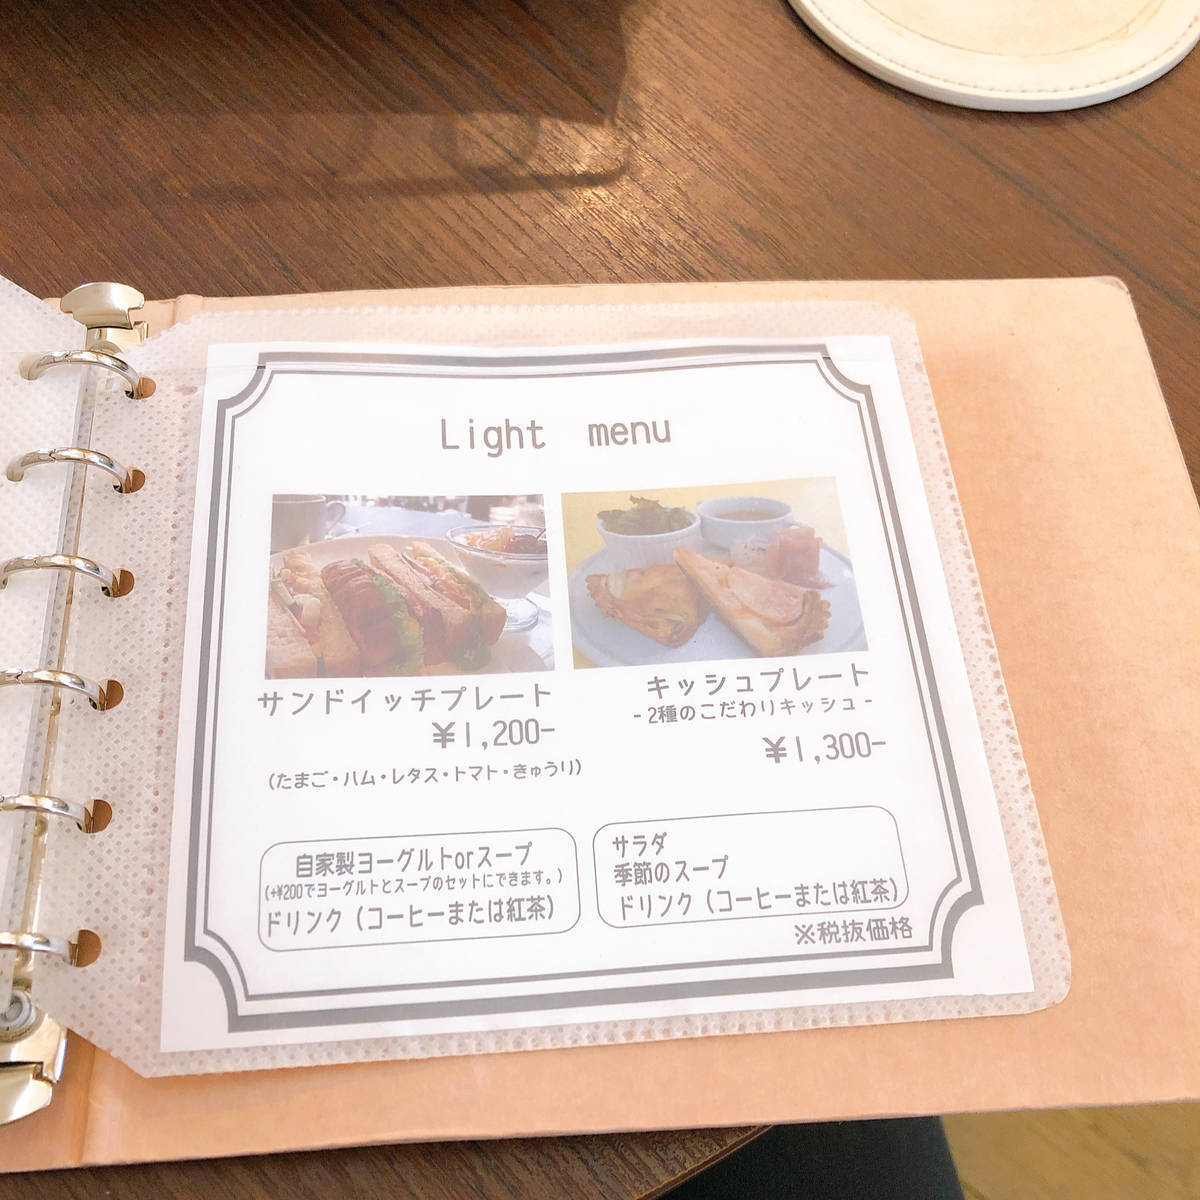 Light menu
サンドイッチプレート
¥1,200-
(たまご・ハム・レタス・トマト・きゅうり)
自家製ヨーグルトorスープ
(+¥200でヨーグルトとスープのセットにできます。)
ドリンク(コーヒーまたは紅茶)
キッシュプレート
-2種のこだわりキッシュ-
¥1,300-
サラダ
季節のスープ
ドリンク(コーヒーまたは紅茶)
※税抜価格